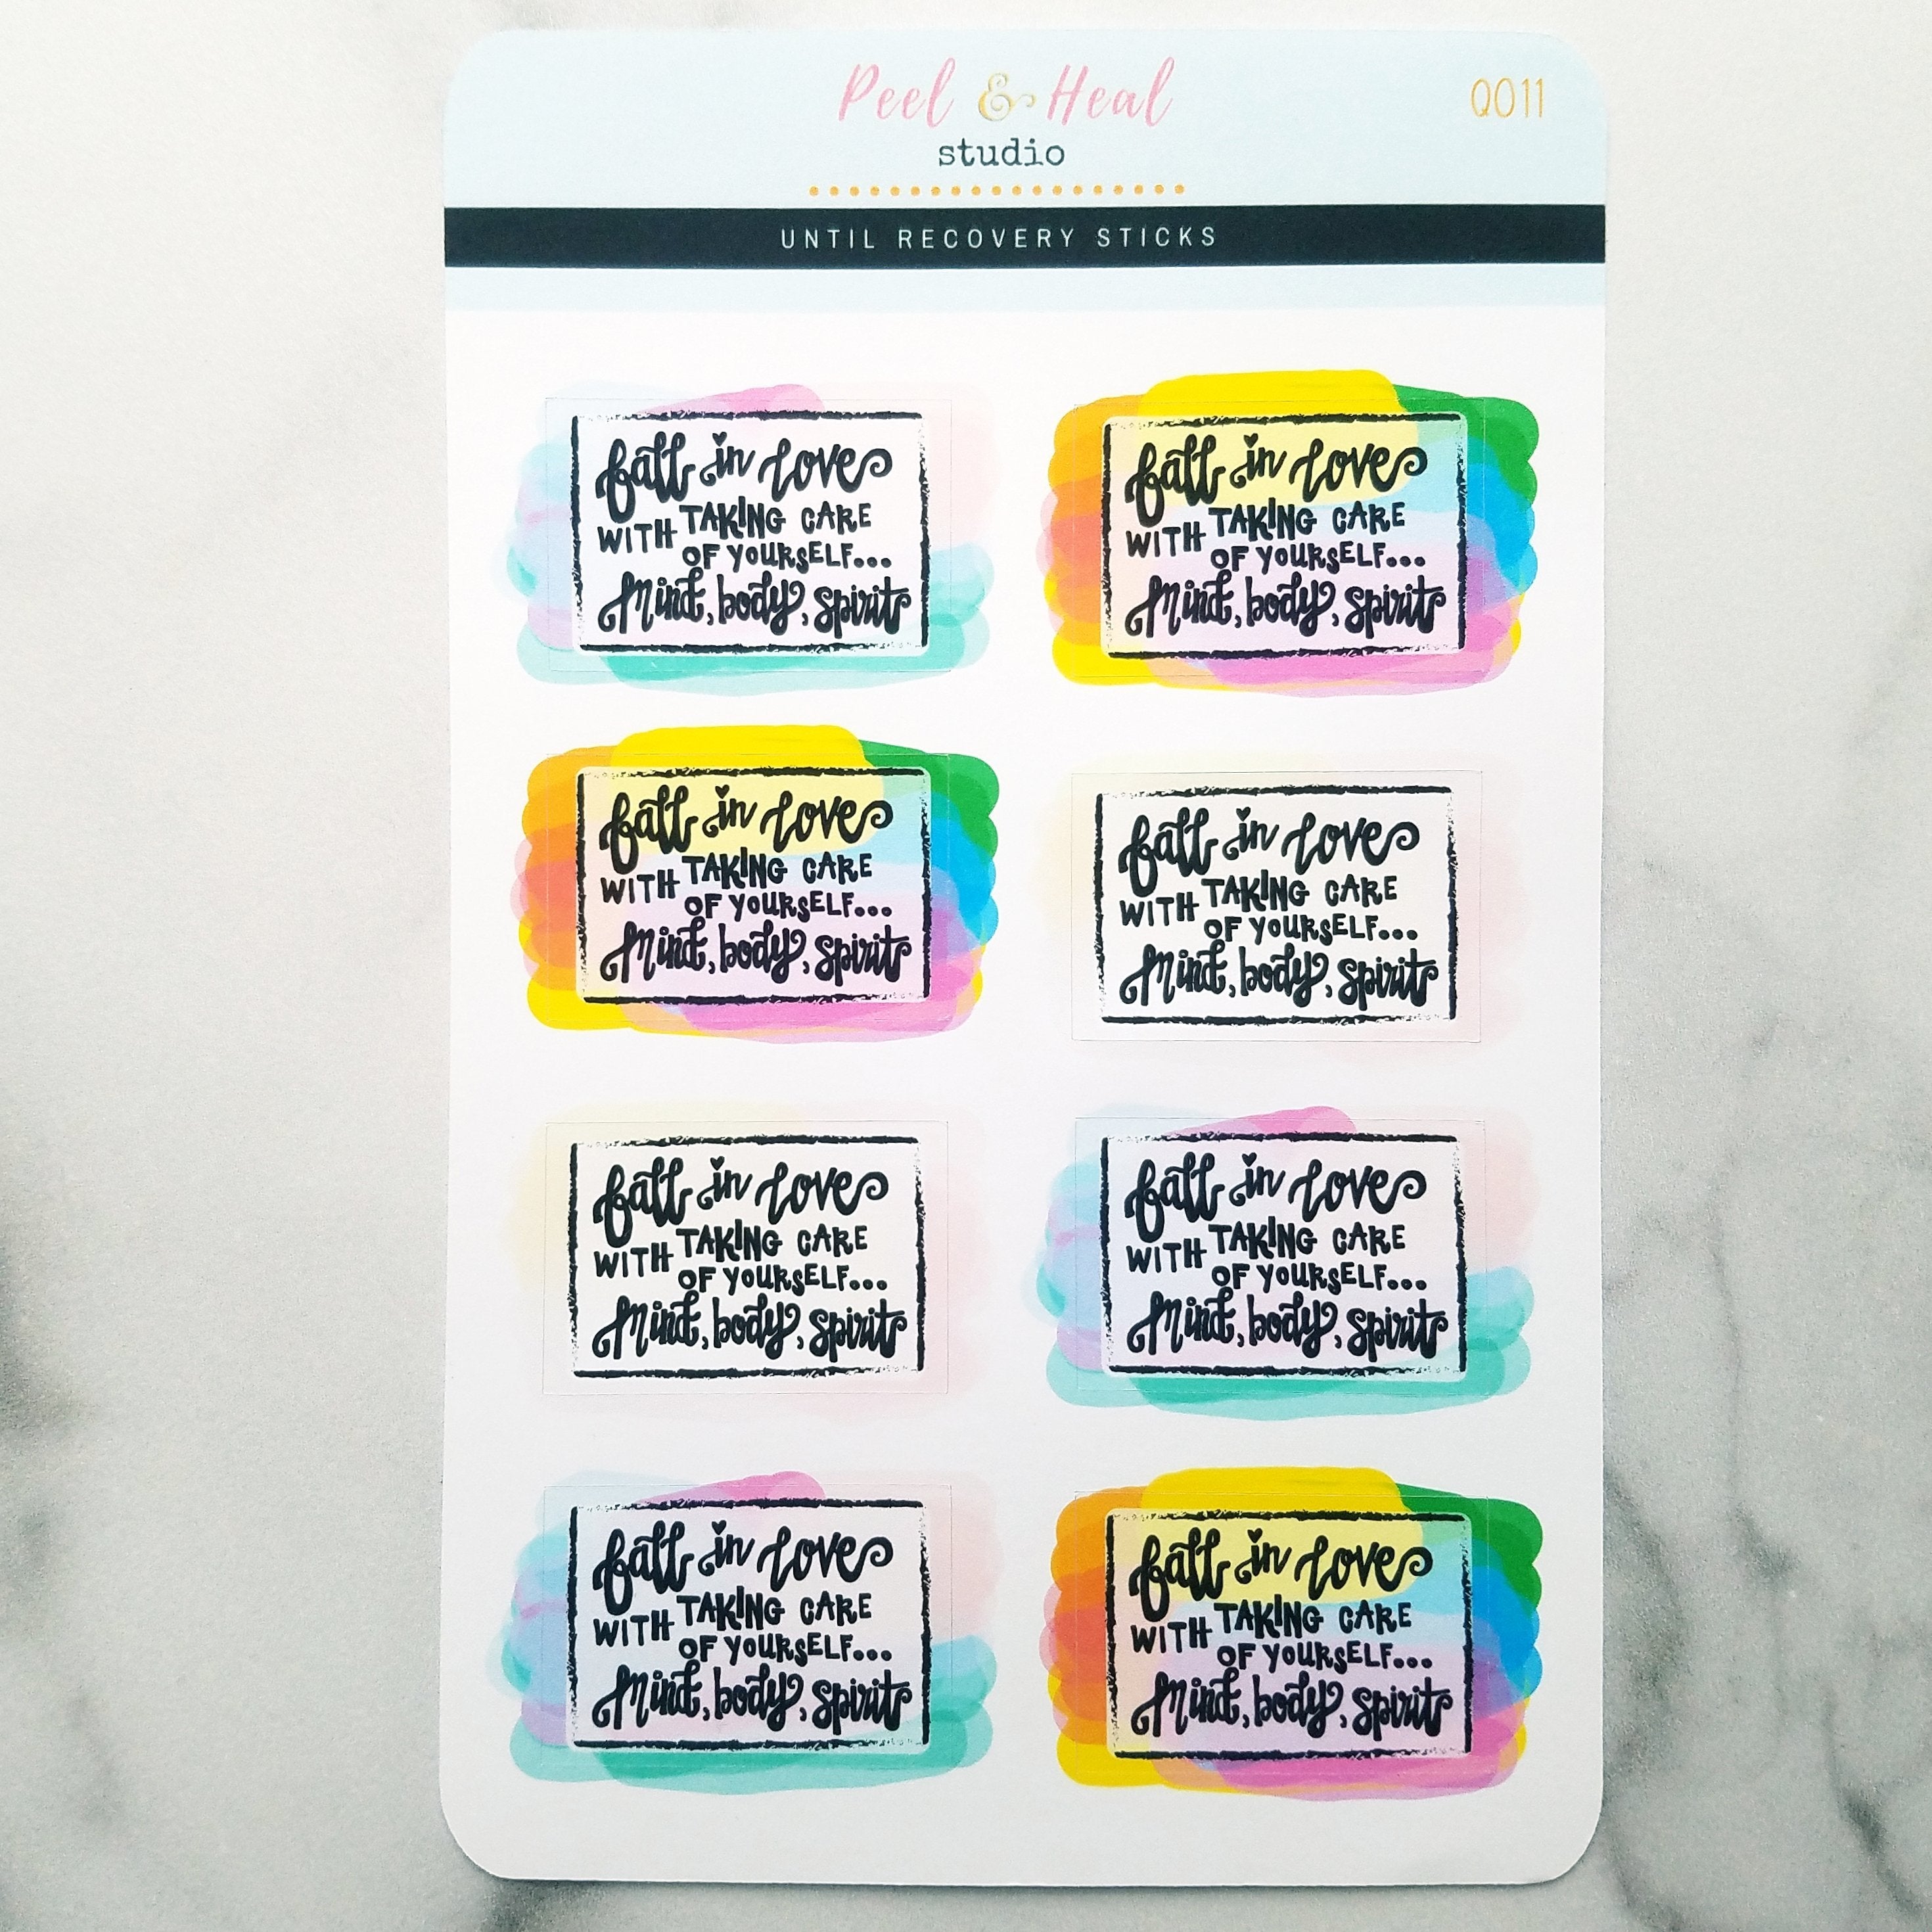 Peel & Heal
studio
Q011
UNTIL RECOVERY STICKS
fall in love
WITH TAKING CARE
OF YOURSELF...
Mind, body, spirit
fall in love
WITH TAKING CARE
OF YOURSELF...
Mind, body, spirit
fall in love
WITH TAKING CARE
OF YOURSELF...
Mind, body, spirit
fall in love
WITH TAKING CARE
OF YOURSELF...
Mind, body, spirit
fall in love
WITH TAKING CARE
OF YOURSELF...
Mind, body, spirit
fall in love
WITH TAKING CARE
OF YOURSELF...
Mind, body, spirit
fall in love
WITH TAKING CARE
OF YOURSELF...
Mind, body, spirit
fall in love
WITH TAKING CARE
OF YOURSELF...
Mind, body, spirit